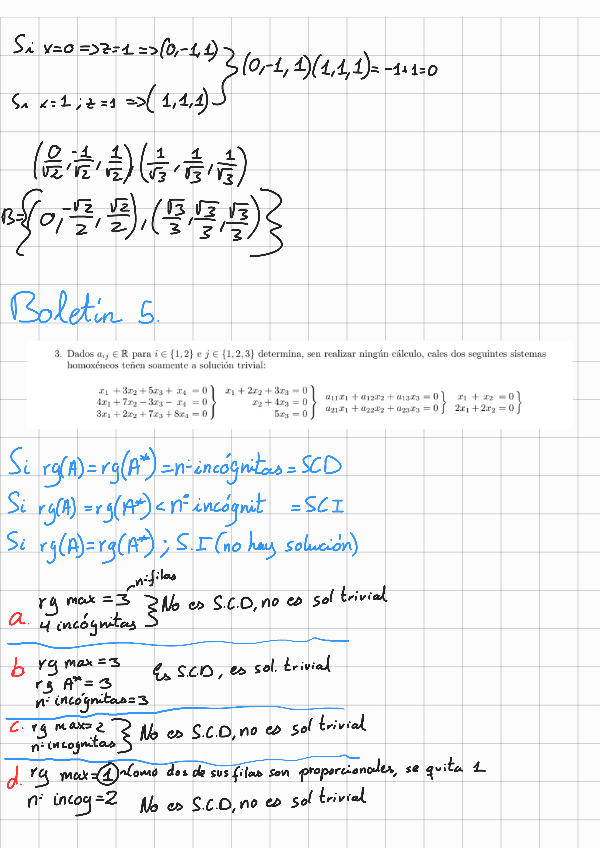 Si x=0 =>z=1 =>(0,-1,1)
(0,-1,1)(1,1,1)= -1+1=0
Si x=1 ; z=1 =>( 1,1,1)
(0/√2, -1/√2, 1/√2),(1/√3, 1/√3, 1/√3)
B={(0, -√2/2, √2/2), (√3/3, √3/3, √3/3)}
Boletín 5.
3. Dados aij ∈ ℝ para i ∈ {1,2} e j ∈ {1,2,3} determina, sen realizar ningún cálculo, cales dos seguintes sistemas
homoxéneos teñen soamente a solución trivial:
x1 + 3x2 + 5x3 + x4 = 0
4x1 + 7x2 − 3x3 − x4 = 0
3x1 + 2x2 + 7x3 + 8x4 = 0
x1 + 2x2 + 3x3 = 0
x2 + 4x3 = 0
5x3 = 0
a11x1 + a12x2 + a13x3 = 0
a21x1 + a22x2 + a23x3 = 0
x1 + x2 = 0
2x1 + 2x2 = 0
Si rg(A)=rg(A*)=nº incógnitas=SCD
Si rg(A)=rg(A*)<nº incógnit =SCI
Si rg(A)=rg(A*) ; S.I (no hay solución)
nº filas
a. rg max=3
4 incógnitas
No es S.C.D, no es sol trivial
b rg max=3
rg A*=3
nº incógnitas=3
Es S.C.D, es sol. trivial
c. rg max=2
nº incognitas
No es S.C.D, no es sol trivial
d. rg max=1 Como dos de sus filas son proporcionales, se quita 1
nº incog=2 No es S.C.D, no es sol trivial